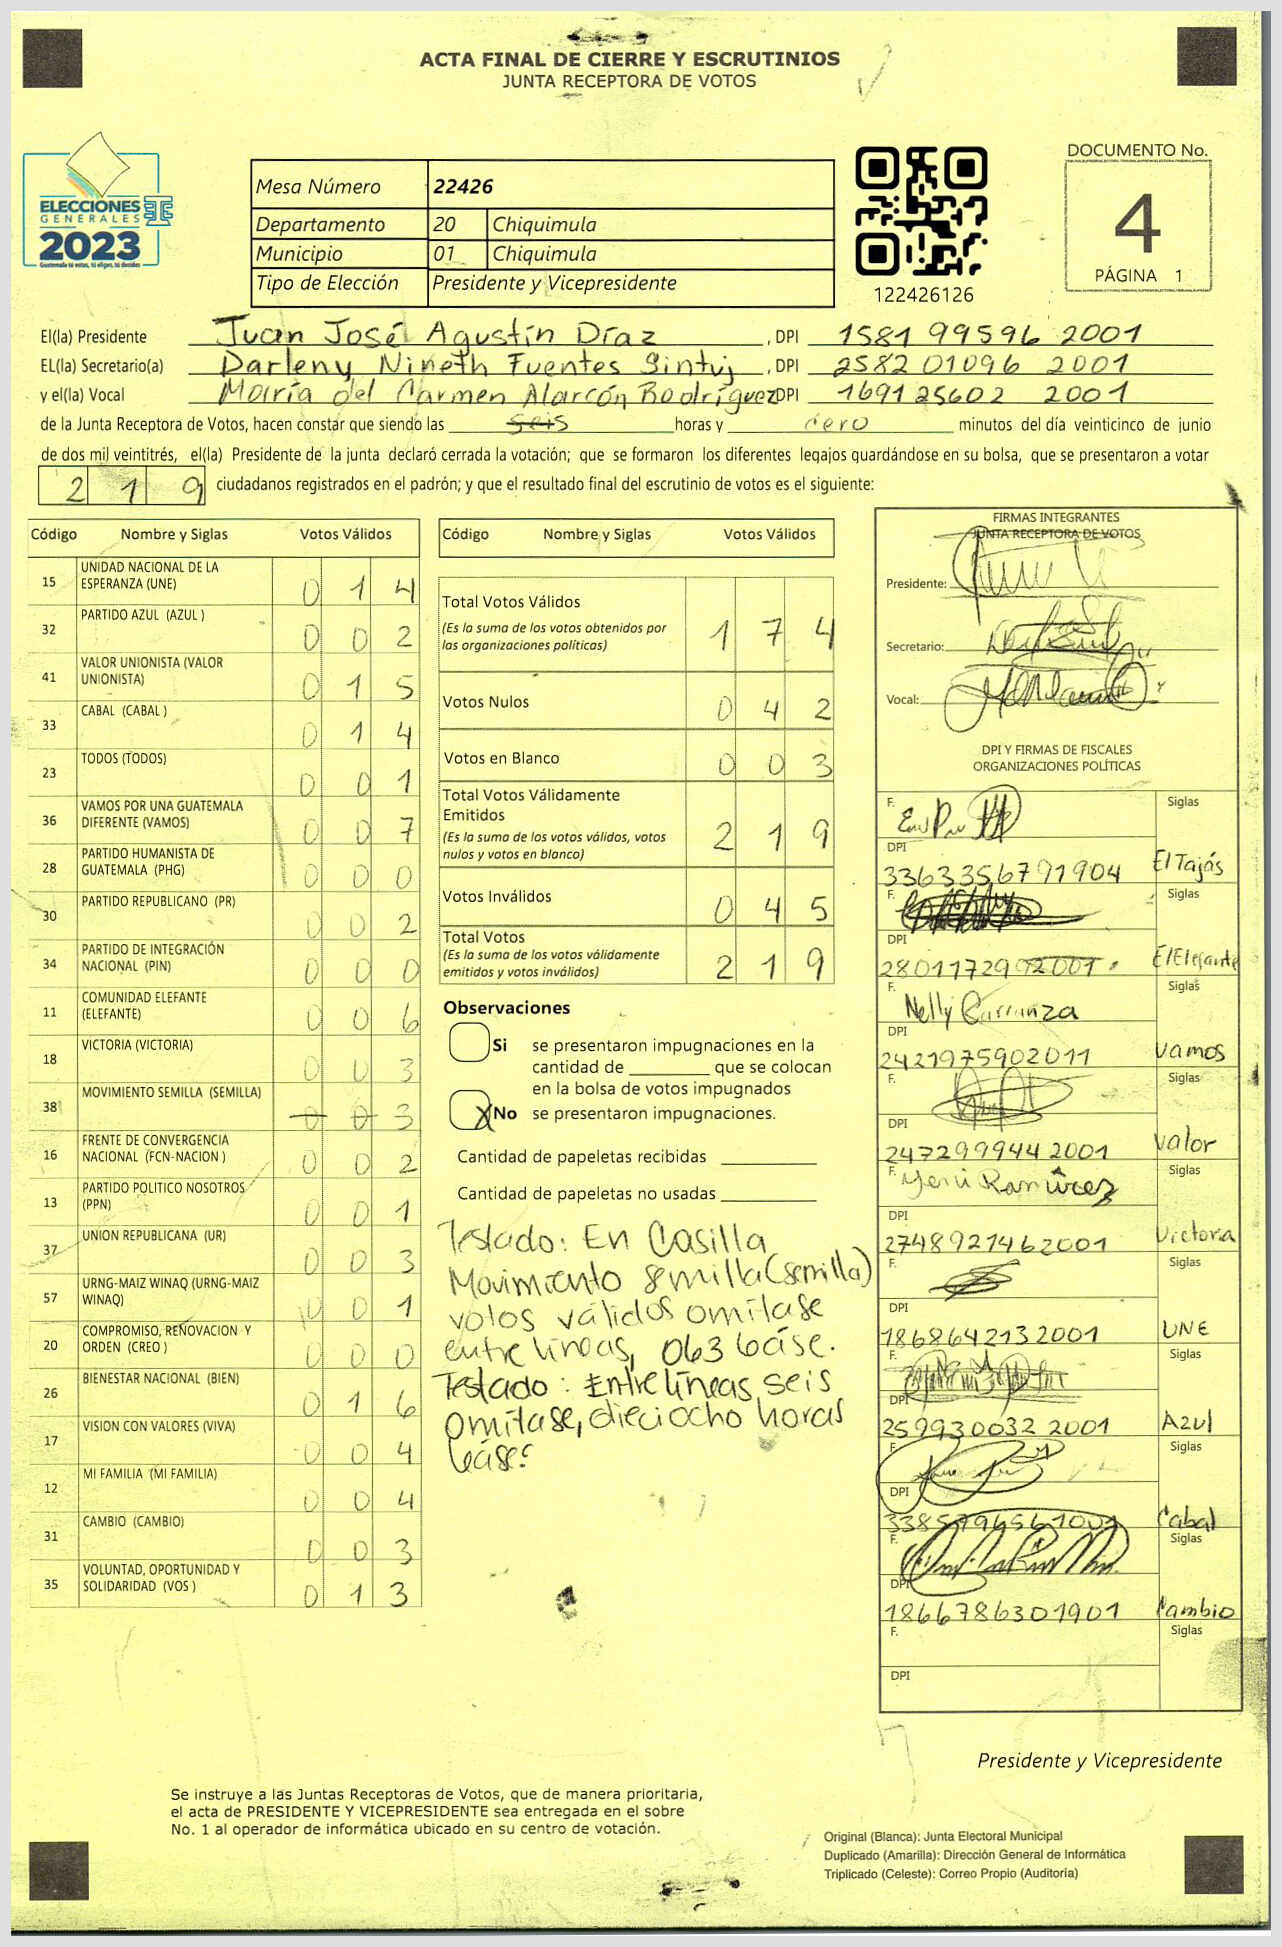 ACTA FINAL DE CIERRE Y ESCRUTINIOS
JUNTA RECEPTORA DE VOTOS
ELECCIONES
GENERALES
2023
Guatemala tú estas, tú eliges, tú decides
Mesa Número 22426
Departamento 20 Chiquimula
Municipio 01 Chiquimula
Tipo de Elección Presidente y Vicepresidente
122426126
DOCUMENTO No.
4
PÁGINA 1
El(la) Presidente Juan José Agustín Díaz, DPI 1581 99596 2001
EL(la) Secretario(a) Darleny Nineth Fuentes Sintuj, DPI 2582 01096 2001
y el(la) Vocal María del Carmen Alarcón Rodríguez DPI 1691 25602 2001
de la Junta Receptora de Votos, hacen constar que siendo las seis horas y cero minutos del día veinticinco de junio
de dos mil veintitrés, el(la) Presidente de la junta declaró cerrada la votación; que se formaron los diferentes legajos guardándose en su bolsa, que se presentaron a votar
2 1 9 ciudadanos registrados en el padrón; y que el resultado final del escrutinio de votos es el siguiente:
Código Nombre y Siglas Votos Válidos
15 UNIDAD NACIONAL DE LA ESPERANZA (UNE) 0 1 4
32 PARTIDO AZUL (AZUL ) 0 0 2
41 VALOR UNIONISTA (VALOR UNIONISTA) 0 1 5
33 CABAL (CABAL ) 0 1 4
23 TODOS (TODOS) 0 0 1
36 VAMOS POR UNA GUATEMALA DIFERENTE (VAMOS) 0 0 7
28 PARTIDO HUMANISTA DE GUATEMALA (PHG) 0 0 0
30 PARTIDO REPUBLICANO (PR) 0 0 2
34 PARTIDO DE INTEGRACIÓN NACIONAL (PIN) 0 0 0
11 COMUNIDAD ELEFANTE (ELEFANTE) 0 0 6
18 VICTORIA (VICTORIA) 0 0 3
38 MOVIMIENTO SEMILLA (SEMILLA) 0 0 3
16 FRENTE DE CONVERGENCIA NACIONAL (FCN-NACION ) 0 0 2
13 PARTIDO POLITICO NOSOTROS (PPN) 0 0 1
37 UNION REPUBLICANA (UR) 0 0 3
57 URNG-MAIZ WINAQ (URNG-MAIZ WINAQ) 0 0 1
20 COMPROMISO, RENOVACION Y ORDEN (CREO ) 0 0 0
26 BIENESTAR NACIONAL (BIEN) 0 1 6
17 VISION CON VALORES (VIVA) 0 0 4
12 MI FAMILIA (MI FAMILIA) 0 0 4
31 CAMBIO (CAMBIO) 0 0 3
35 VOLUNTAD, OPORTUNIDAD Y SOLIDARIDAD (VOS ) 0 1 3
Código Nombre y Siglas Votos Válidos
Total Votos Válidos 1 7 4
(Es la suma de los votos obtenidos por
las organizaciones políticas)
Votos Nulos 0 4 2
Votos en Blanco 0 0 3
Total Votos Válidamente
Emitidos 2 1 9
(Es la suma de los votos válidos, votos
nulos y votos en blanco)
Votos Inválidos 0 4 5
Total Votos 2 1 9
(Es la suma de los votos válidamente
emitidos y votos inválidos)
Observaciones
Si se presentaron impugnaciones en la
cantidad de ________ que se colocan
en la bolsa de votos impugnados
X No se presentaron impugnaciones.
Cantidad de papeletas recibidas
Cantidad de papeletas no usadas
Testado: En Casilla
Movimiento semilla (semilla)
votos válidos omitase
entre lineas, 063 léase.
Testado: Entre líneas seis
omitase, dieciocho horas
léase.
FIRMAS INTEGRANTES
JUNTA RECEPTORA DE VOTOS
Presidente:
Secretario:
Vocal:
DPI Y FIRMAS DE FISCALES
ORGANIZACIONES POLÍTICAS
F. Siglas
DPI
3363356791904 El Tajás
F. Siglas
DPI
2801172992001 El Elefante
F. Nelly Carranza Siglas
DPI
2421975902011 Vamos
F. Siglas
DPI
247299944 2001 Valor
F. Yeni Ramírez Siglas
DPI
2748921462001 Victoria
F. Siglas
DPI
1868642132001 UNE
F. Siglas
DPI
259930032 2001 Azul
F. Siglas
DPI
Cabal
F. Siglas
DPI
1866786301901 Cambio
F. Siglas
DPI
Presidente y Vicepresidente
Se instruye a las Juntas Receptoras de Votos, que de manera prioritaria,
el acta de PRESIDENTE Y VICEPRESIDENTE sea entregada en el sobre
No. 1 al operador de informática ubicado en su centro de votación.
Original (Blanca): Junta Electoral Municipal
Duplicado (Amarilla): Dirección General de Informática
Triplicado (Celeste): Correo Propio (Auditoría)